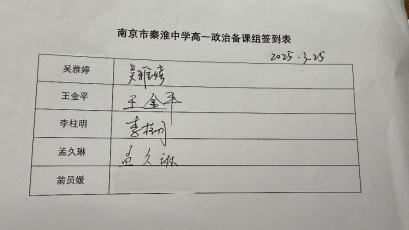 南京市秦淮中学高一政治备课组签到表
2025.3.25
吴雅婷 吴雅婷
王金平 王金平
李柱明 李柱明
孟久琳 孟久琳
翁员媛